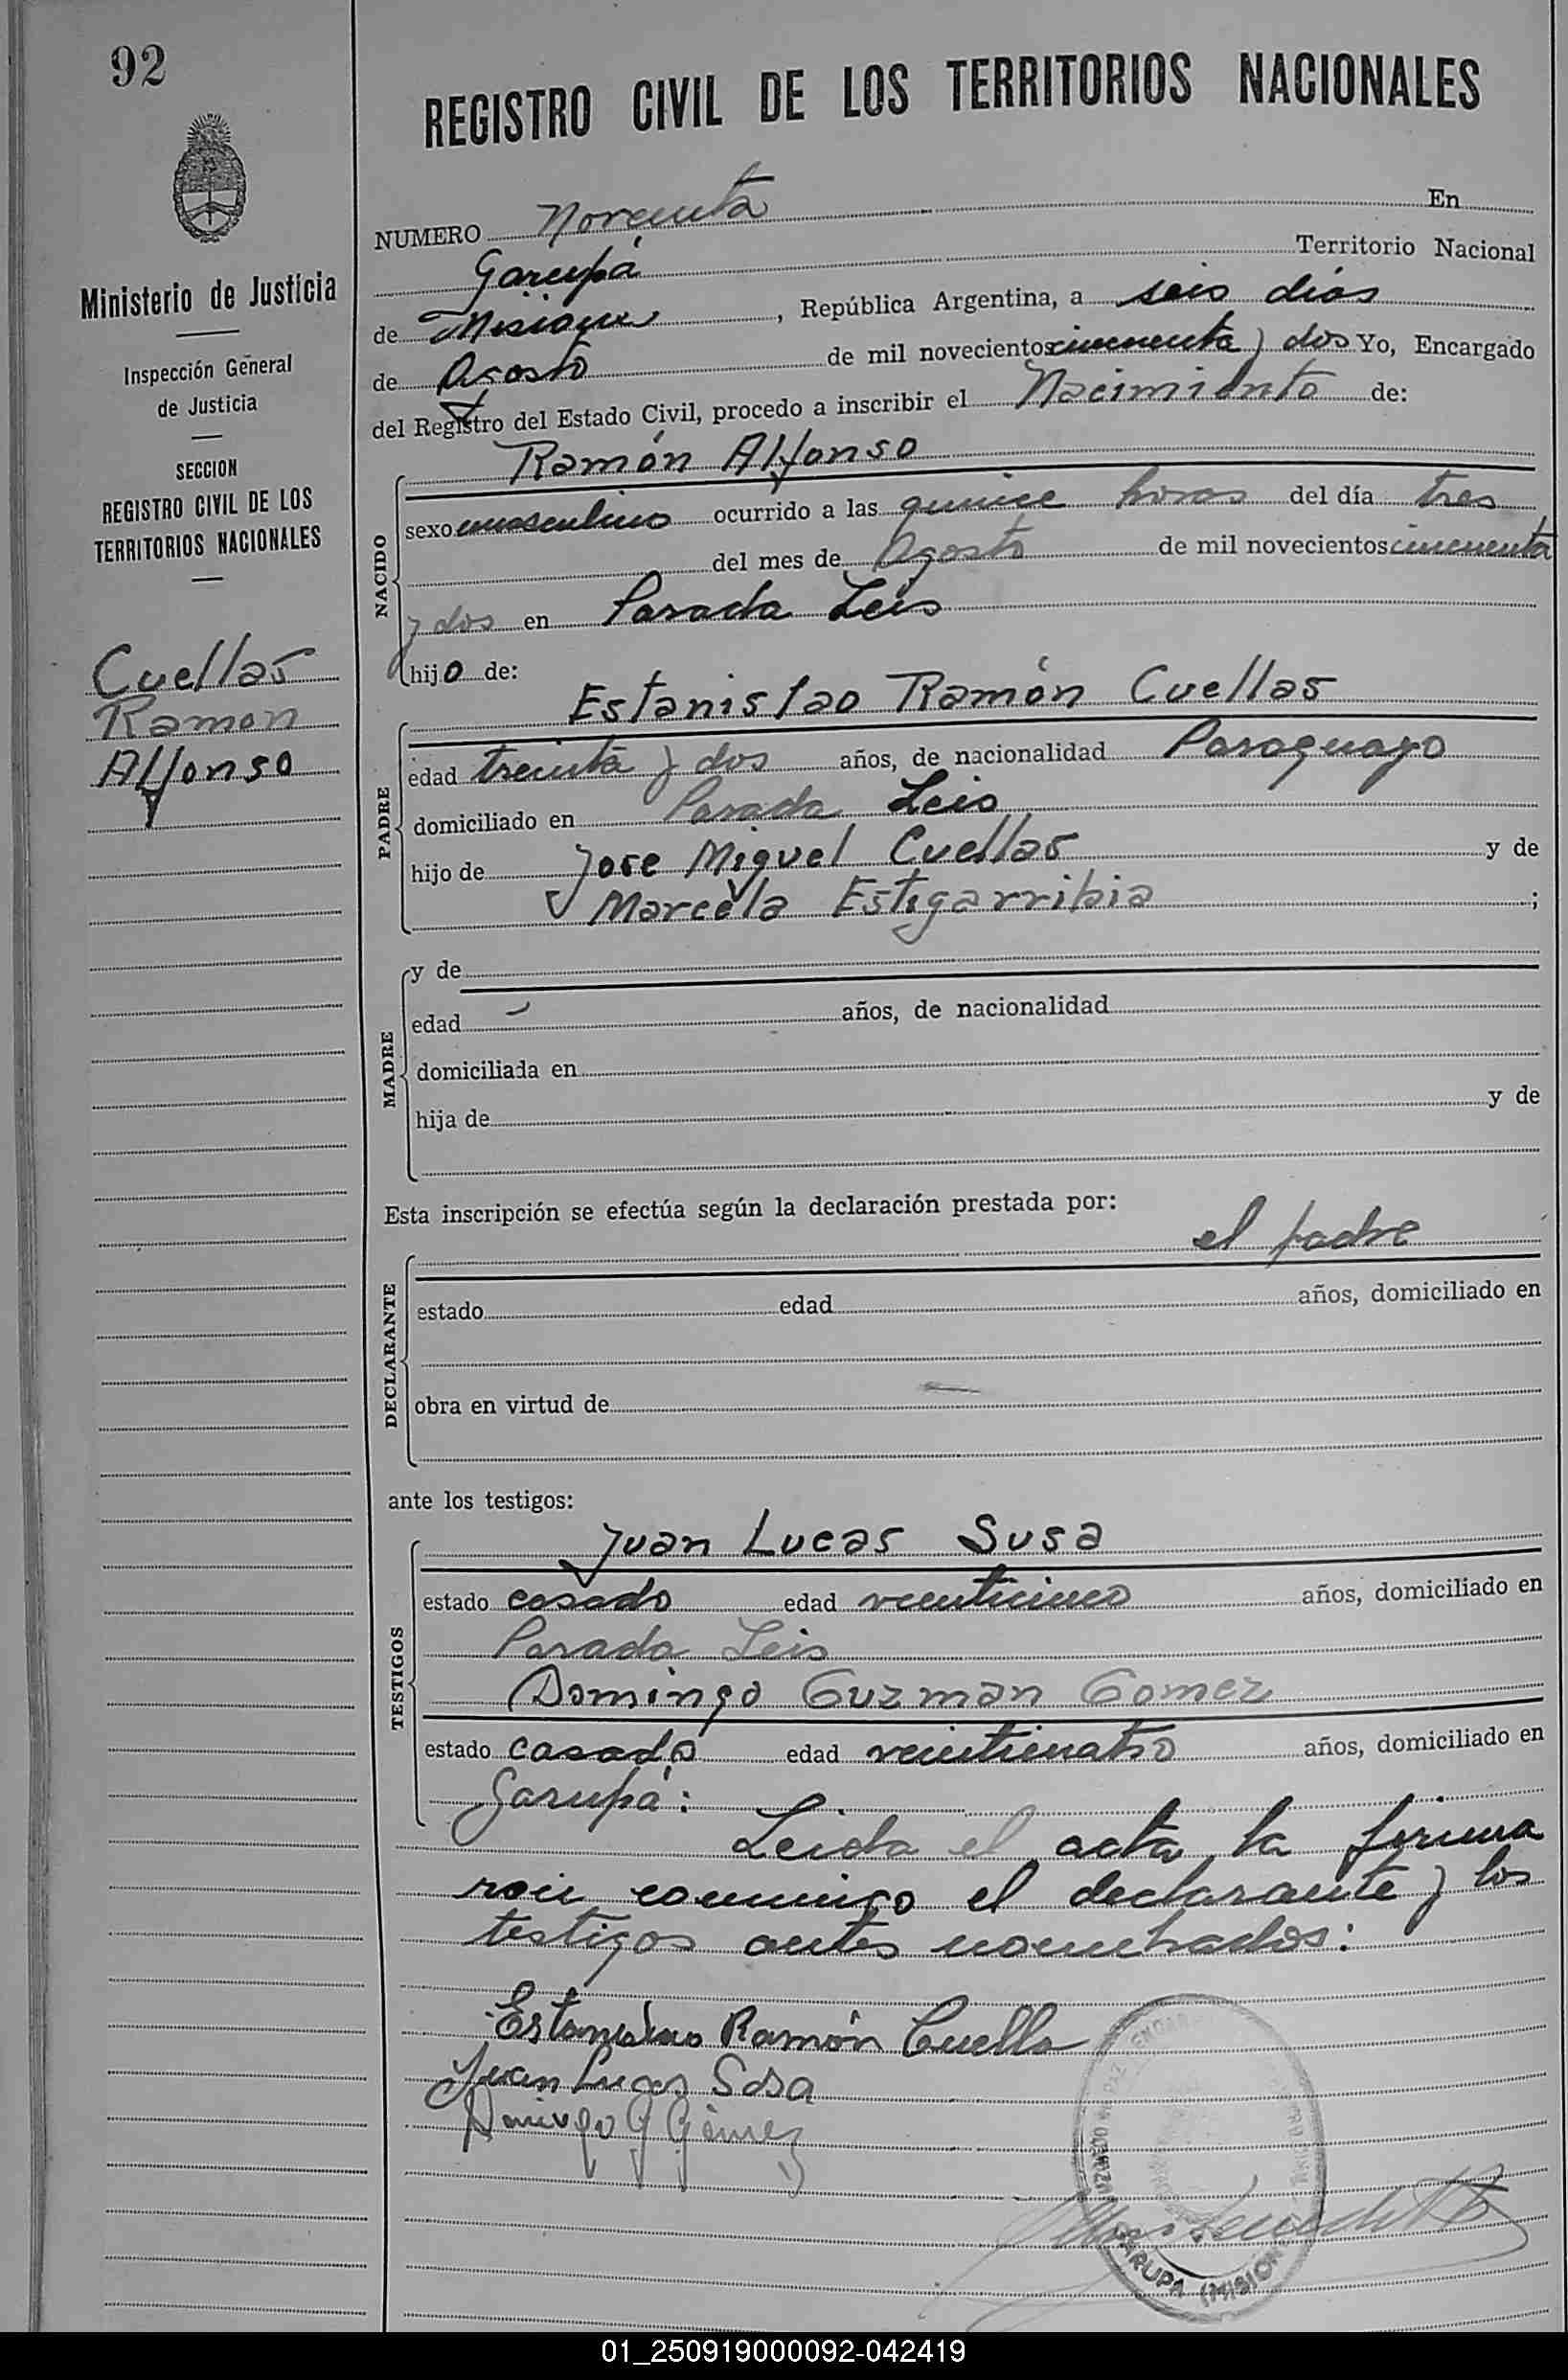 92
REGISTRO CIVIL DE LOS TERRITORIOS NACIONALES
Ministerio de Justicia
Inspección General
de Justicia
SECCION
REGISTRO CIVIL DE LOS
TERRITORIOS NACIONALES
Cuellar
Ramon
Alfonso
NUMERO Noventa En
Garupá Territorio Nacional
de Misiones, República Argentina, a seis dias
de Agosto de mil novecientos cincuenta y dos Yo, Encargado
del Registro del Estado Civil, procedo a inscribir el Nacimiento de:
NACIDO
Ramón Alfonso
sexo masculino ocurrido a las quince horas del día tres
del mes de Agosto de mil novecientos cincuenta
y dos en Parada Leis
hijo de:
PADRE
Estanislao Ramón Cuellar
edad treinta y dos años, de nacionalidad Paraguayo
domiciliado en Parada Leis
hijo de Jose Miguel Cuellar y de
Marcela Estigarribia ;
MADRE
y de
edad años, de nacionalidad
domiciliada en
hija de y de
Esta inscripción se efectúa según la declaración prestada por:
DECLARANTE
el padre
estado edad años, domiciliado en
obra en virtud de
ante los testigos:
TESTIGOS
Juan Lucas Susa
estado casado edad veinticinco años, domiciliado en
Parada Leis
Domingo Guzman Gomez
estado casado edad veinticuatro años, domiciliado en
Garupá:
Leida el acta la firma
ron conmigo el declarante y los
testigos antes nombrados:
Estanislao Ramón Cuella
Juan Lucas Sosa
Domingo G Gómez
GARUPA (MISIONES)
01_250919000092-042419